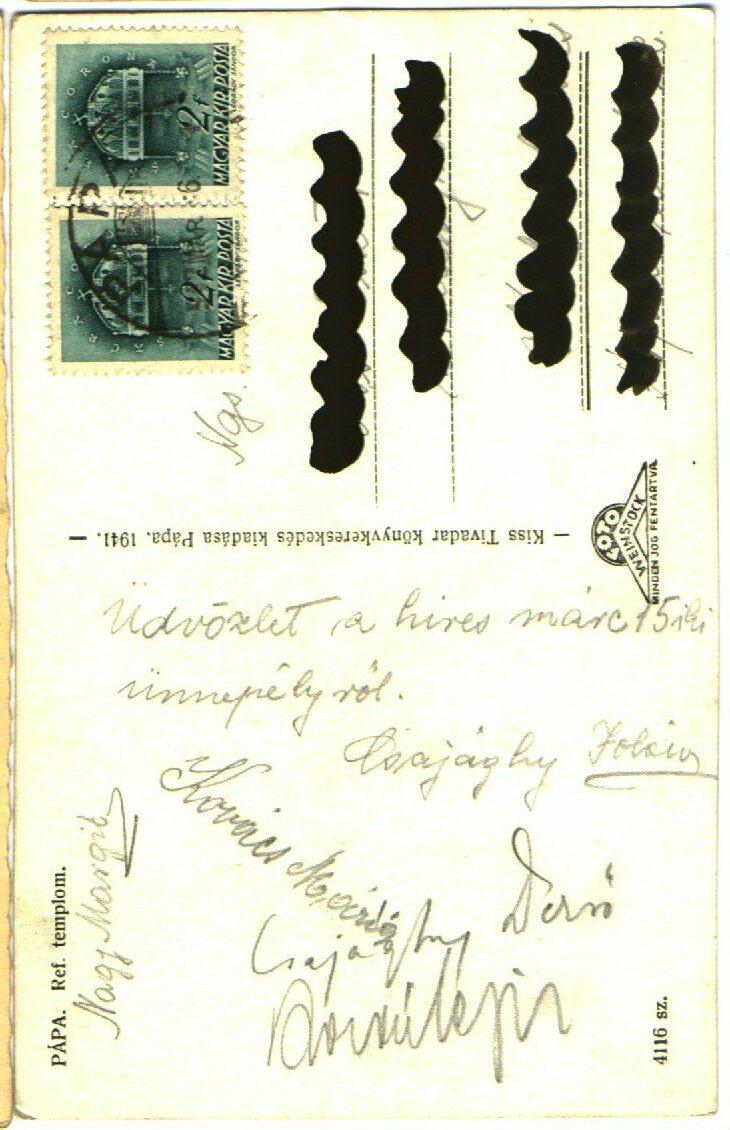 MAGYAR KIR. POSTA
2f
MAGYAR KIR. POSTA
2f
PÁPA
Ngs.
— Kiss Tivadar könyvkereskedés kiadása Pápa. 1941. —
FOTO
WEINSTOCK
MINDEN JOG FENTARTVA
Üdvözlet a hires márc 15 iki
ünnepélyről.
Csajághy Zoltán
Kovács Mária
Nagy Margit
Csajághy Dezső
PÁPA. Ref. templom.
4116 sz.